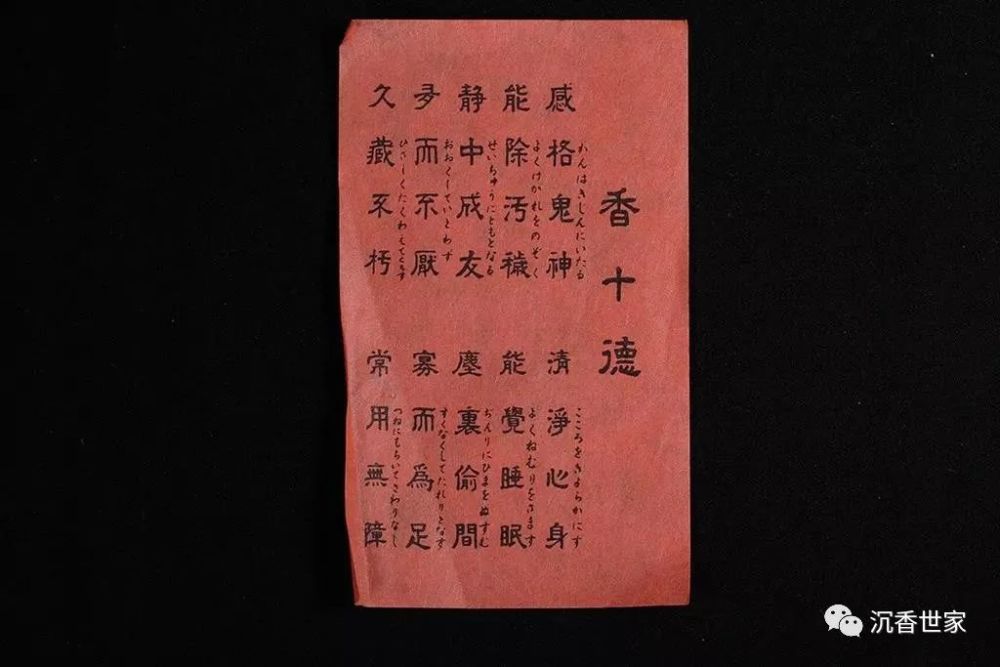 香十德
感格鬼神
かんはきじんにいたる
清淨心身
こころをきよらかにす
能除汚穢
よくけがれをのぞく
能覺睡眠
よくねむりをさます
静中成友
せいちゅうにともとなる
塵裏偷間
ぢんりにひまをぬすむ
多而不厭
おおくしていとわず
寡而為足
すくなくしてたれりとなす
久藏不朽
ひさしくたくわえてくちず
常用無障
つねにもちいてさわりなし
沉香世家